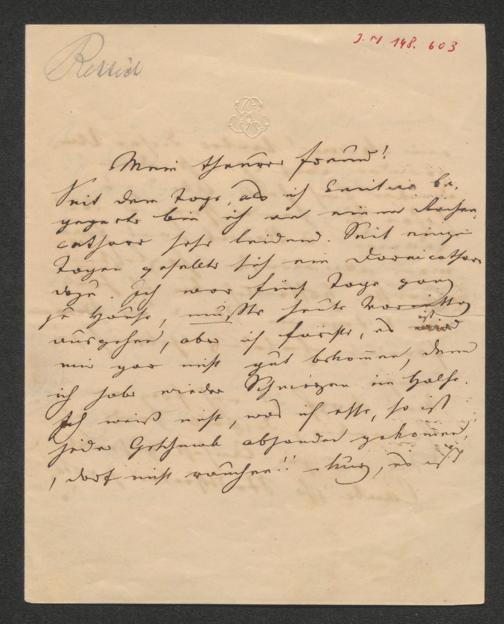 Rettich
J. N 148. 603
Mein theurer Freund!
Seit dem Tage, als ich Emilie be-
gegnete bin ich an einem Rachen
catharr sehr leidend. Seit einigen
Tagen gesellte sich ein Darmcatharr
dazu. Ich war fünf Tage ganz
zu Hause, mußte heute Vormittag
ausgehen, aber ich fürchte, es ist
mir gar nicht gut bekommen, denn
ich habe wieder Schmerzen im Halse.
Ich weiß nicht, was ich esse, so ist
jeder Geschmak abhanden gekommen,
, darf nicht rauchen!! – kurz, es ist